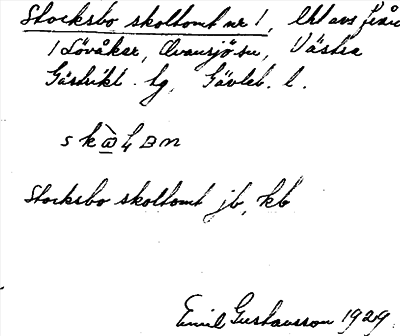 Stocksbo skoltomt nr 1, Utl avs från
1 Lövåker, Ovansjö sn, Västra
Gästrikl. hg, Gävleb. l.
Stocksbo skoltomt jb, kb
Emil Gustavsson 1929